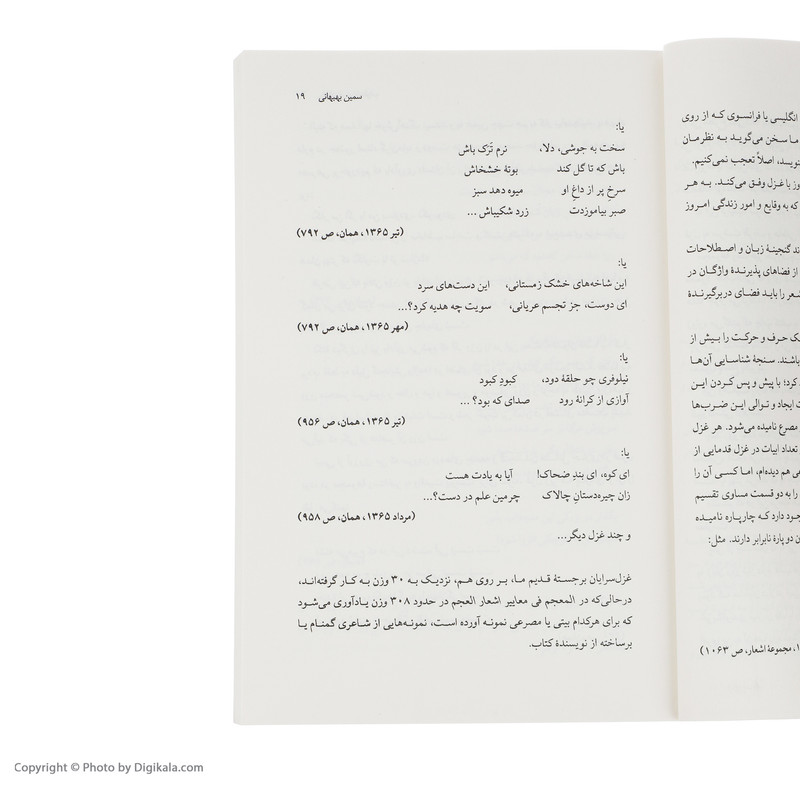 انگلیسی یا فرانسوی که از روی
ما سخن می‌گوید به نظرمان
اصلاً تعجب نمی‌کنیم.
با غزل وفق می‌کند. به هر
که به وقایع و امور زندگی امروز
گنجینهٔ زبان و اصطلاحات
از فضاهای پذیرندهٔ واژگان در
شعر را باید فضای دربرگیرندهٔ
حرف و حرکت را بیش از
باشند. سنجهٔ شناسایی آن‌ها
کرد؛ با پیش و پس کردن این
ایجاد و توالی این ضرب‌ها
مصرع نامیده می‌شود. هر غزل
تعداد ابیات در غزل قدمایی از
هم دیده‌ام، اما کسی آن را
را به دو قسمت مساوی تقسیم
دارد که چارپاره نامیده
دو پارهٔ نابرابر دارند. مثل:
، مجموعهٔ اشعار، ص ۱۰۶۳)
سمین بهبهانی ۱۹
یا:
سخت به جوشی، دلا، نرم تَرَک باش
باش که تا گل کند بوتهٔ خشخاش
سرخِ پر از داغِ او میوه دهد سبز
صبر بیاموزدت زرد شکیباش ...
(تیر ۱۳۶۵، همان، ص ۷۹۲)
یا:
این شاخه‌های خشک زمستانی، این دست‌های سرد
ای دوست، جز تجسم عریانی، سویت چه هدیه کرد؟...
(مهر ۱۳۶۵، همان، ص ۷۹۲)
یا:
نیلوفری چو حلقهٔ دود، کبودِ کبود
آوازی از کرانهٔ رود صدای که بود؟ ...
(تیر ۱۳۶۵، همان، ص ۹۵۶)
یا:
ای کوه، ای بندِ ضحاک! آیا به یادت هست
زان چیره‌دستانِ چالاک چرمین علم در دست؟...
(مرداد ۱۳۶۵، همان، ص ۹۵۸)
و چند غزل دیگر...
غزل‌سرایان برجستهٔ قدیم ما، بر روی هم، نزدیک به ۳۰ وزن به کار گرفته‌اند،
درحالی‌که در المعجم فی معاییر اشعار العجم در حدود ۳۰۸ وزن یادآوری می‌شود
که برای هرکدام بیتی یا مصرعی نمونه آورده است، نمونه‌هایی از شاعری گمنام یا
برساخته از نویسندهٔ کتاب.
Copyright © Photo by Digikala.com